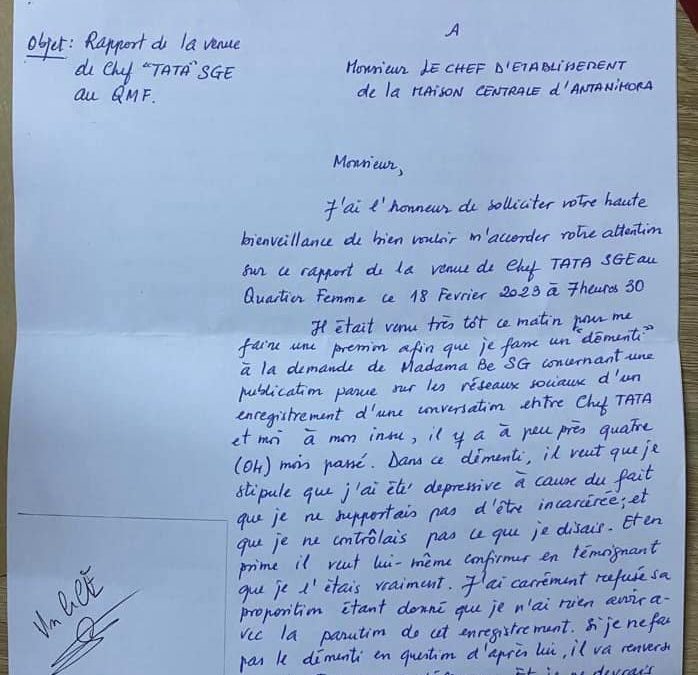 A
Objet: Rapport de la venue
de Chef "TATA" SGE
au QMF.
Monsieur LE CHEF D'ETABLISSEMENT
de la MAISON CENTRALE d'ANTANIMORA
Monsieur,
J'ai l'honneur de solliciter votre haute
bienveillance de bien vouloir m'accorder votre attention
sur ce rapport de la venue de Chef TATA SGE au
Quartier Femme ce 18 Fevrier 2023 à 7heures 30
Il était venu très tôt ce matin pour me
faire une pression afin que je fasse un "démenti"
à la demande de Madama Be SG concernant une
publication parue sur les réseaux sociaux d'un
enregistrement d'une conversation entre Chef TATA
et moi à mon insu, il y a à peu près quatre
(04) mois passé. Dans ce démenti, il veut que je
stipule que j'ai été depressive à cause du fait
que je ne supportais pas d'être incarcérée; et
que je ne contrôlais pas ce que je disais. Et en
prime il veut lui-même confirmer en témoignant
que je l'étais vraiment. J'ai carrément refusé sa
proposition étant donné que je n'ai rien avoir a-
vec la parution de cet enregistrement. Si je ne fais
pas le démenti en question d'après lui, il va renvers
je ne devrais